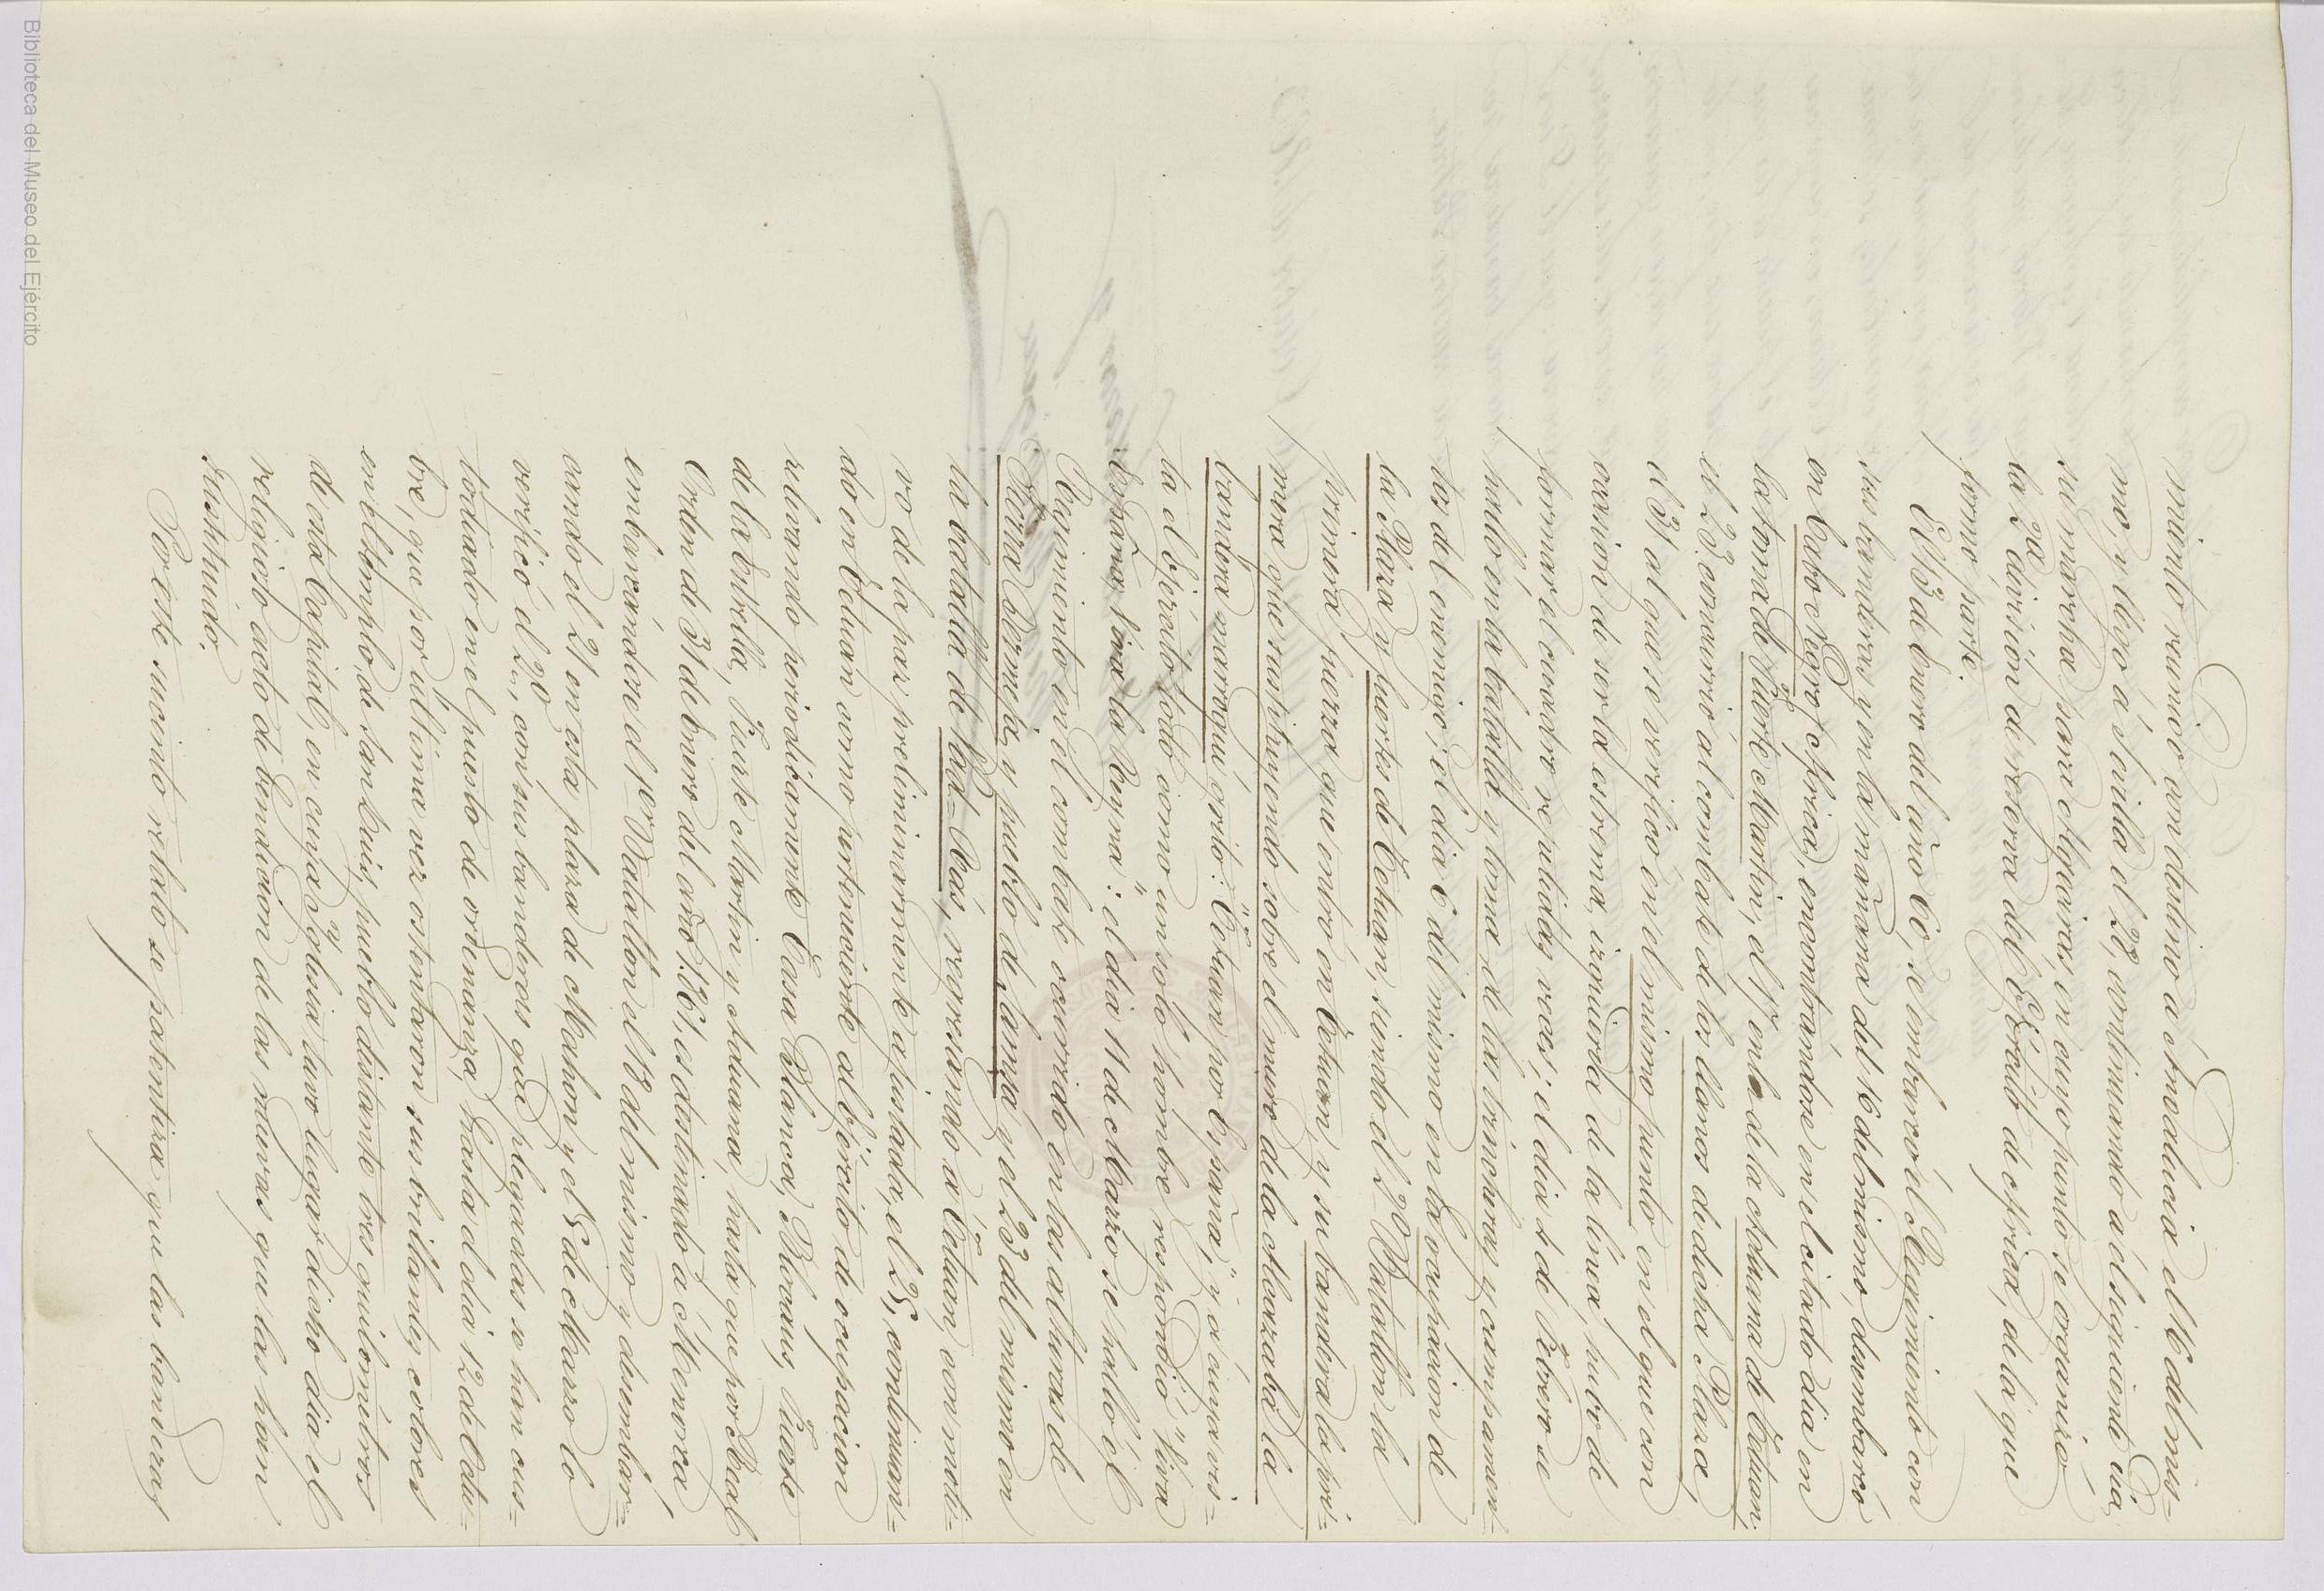 miento reunido con destino á Andalucia el 16 del mis-
mo, y llegó á Sevilla el 28, continuando al siguiente dia
su marcha para Algeciras, en cuyo punto se organizó
la 2ª division de reserva del Ejército de Africa, de la que
formó parte.
El 13 de Enero del año 60, se embarcó el Regimiento con
sus banderas, y en la mañana del 16 del mismo, desembarcó
en Cabo Negro (Africa), encontrándose en el citado dia en
la toma de Fuerte Martin; el 17 en la de la Aduana de Tetuan,
el 23 concurrió al combate de los llanos de dicha Plaza,
el 31 al que se verificó en el mismo punto en el que con
ocasion de ser la estrema izquierda de la línea, hubo de
formar el cuadro repetidas veces; el dia 4 de Febrero se
halló en la batalla y toma de las trincheras y campamen-
tos del enemigo; el dia 6 del mismo en la ocupacion de
la Plaza y fuertes de Tetuan, siendo el 2º Batallon la
primera fuerza que entró en Tetuan, y su bandera la pri-
mera que sustituyendo sobre el muro de la Alcazaba la
bandera marroquí gritó: "Tetuan por España," y á cuya vis-
ta el Ejército todo como un solo hombre respondió "Viva
España, Viva la Reyna": el dia 11 de Marzo se halló el
Regimiento en el combate ocurrido en las alturas de
Sierra Bermeja, y pueblo de Samsa, y el 23 del mismo en
la batalla de Vad-Ras, regresando á Tetuan, con moti-
vo de la paz preliminarmente ajustada, el 25, continuan-
do en Tetuan como perteneciente al Ejército de ocupacion
relevando periodicamente Casa Blanca, Bocaus, Fuerte
de la Estrella, Fuerte Martin y Aduana, hasta que por Real
Orden de 31 de Enero del año 1861, es destinado á Menorca
embarcándose el 1er Batallon el 18 del mismo y desembar-
cando el 21 en esta plaza de Mahon y el 5 de Marzo lo
verificó el 2º, con sus banderas que plegadas se han cus-
todiado en el puesto de ordenanza, hasta el dia 12 de Octu-
bre, que por última vez ostentaron sus brillantes colores
en el templo de San Luis, pueblo distante tres quilómetros
de esta Capital, en cuya Yglesia tuvo lugar dicho dia el
religioso acto de bendicion de las nuevas que las han
sustituido.
Por este sucinto relato se patentiza que las banderas
Biblioteca del Museo del Ejército